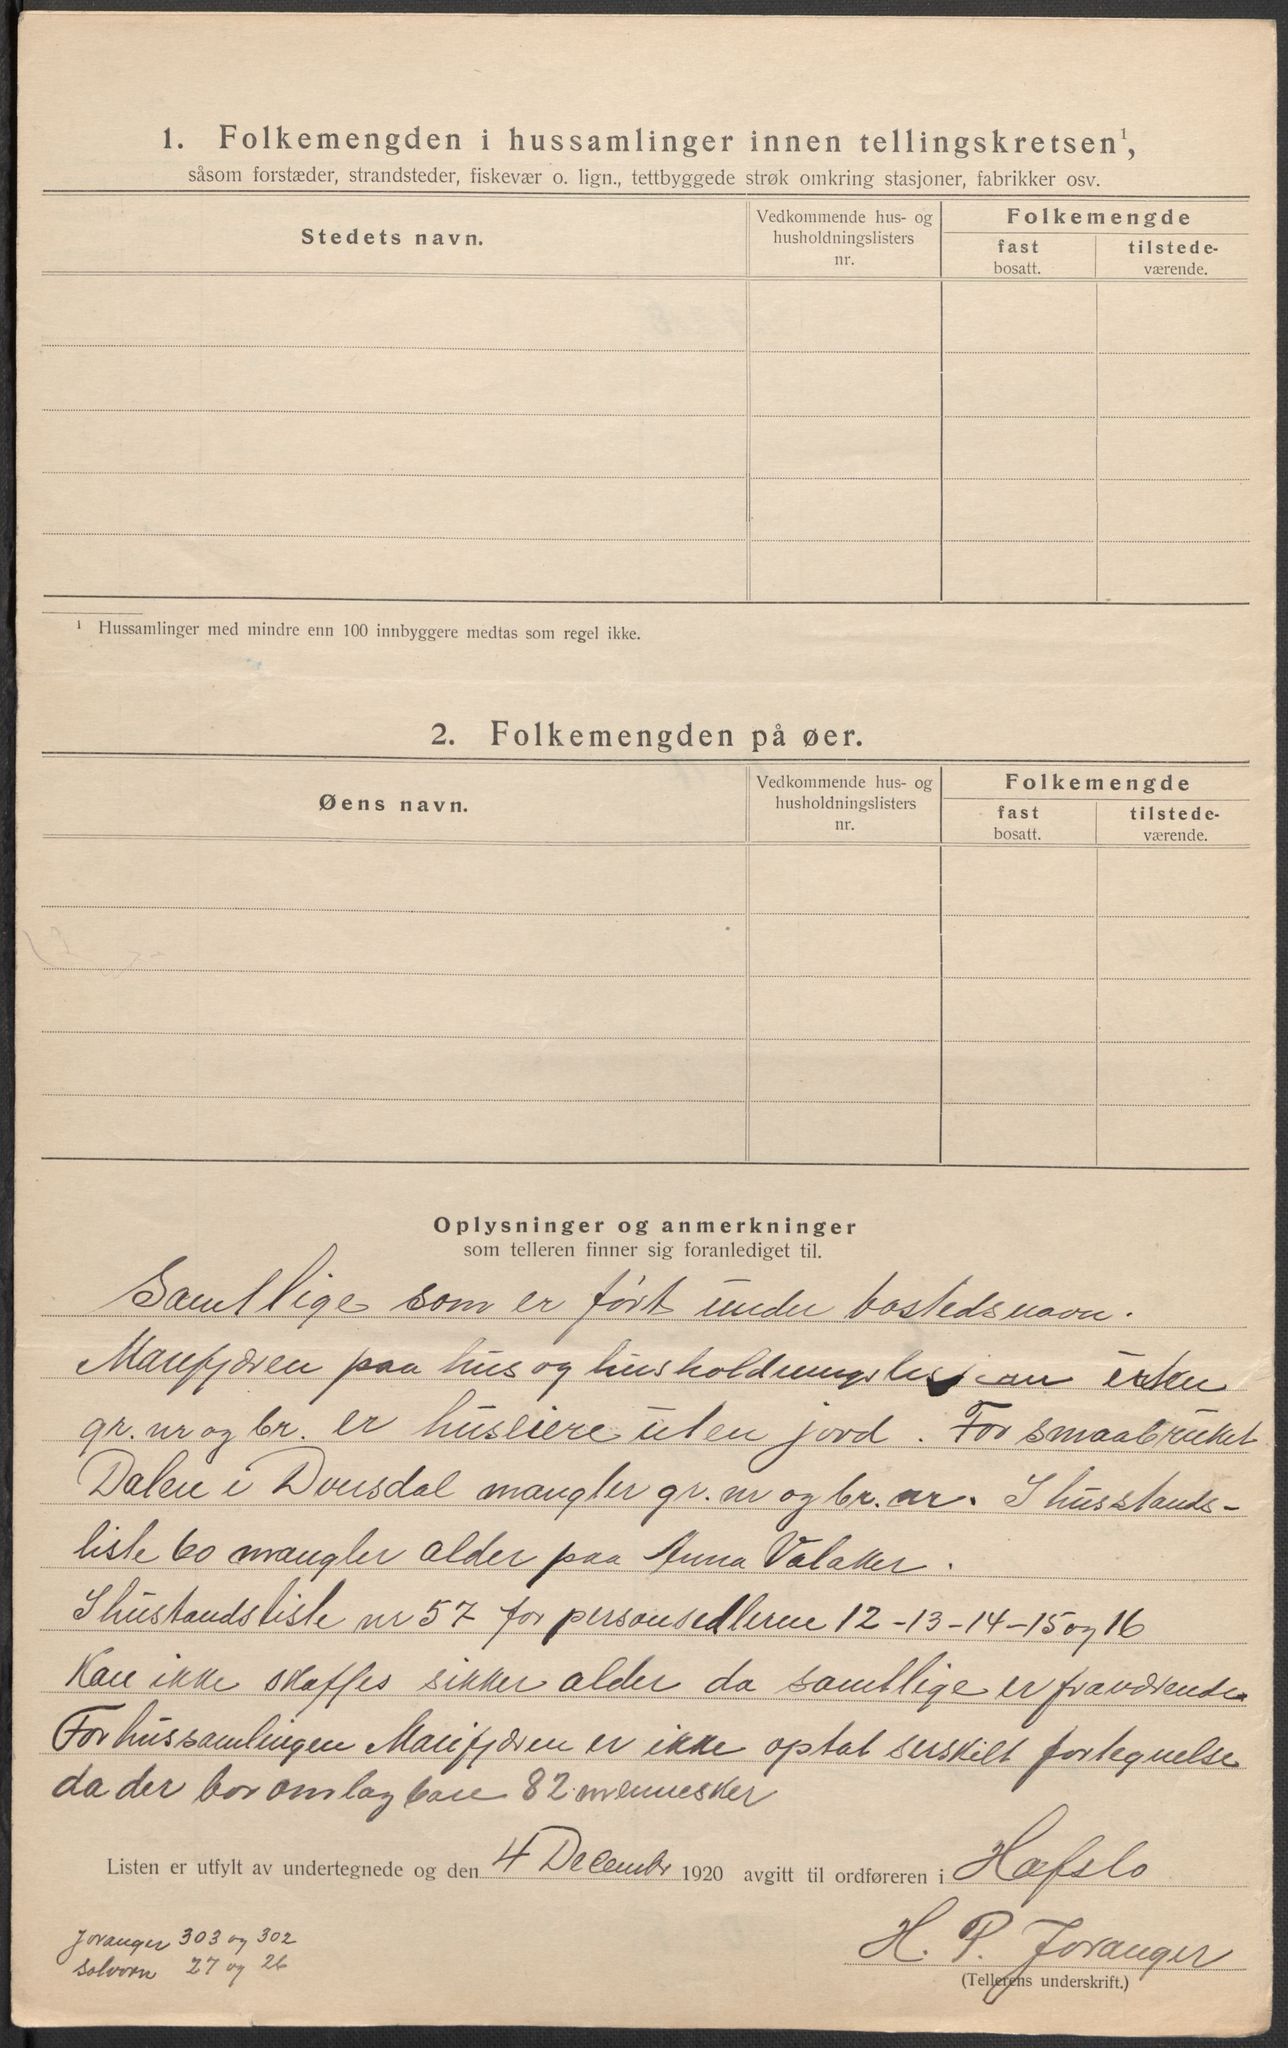 1. Folkemengden i hussamlinger innen tellingskretsen¹,
såsom forstæder, strandsteder, fiskevær o. lign., tettbyggede strøk omkring stasjoner, fabrikker osv.
Stedets navn.
Vedkommende hus- og
husholdningslisters
nr.
Folkemengde
fast
bosatt.
tilstede-
værende.
¹ Hussamlinger med mindre enn 100 innbyggere medtas som regel ikke.
2. Folkemengden på øer.
Øens navn.
Vedkommende hus- og
husholdningslisters
nr.
Folkemengde
fast
bosatt.
tilstede-
værende.
Oplysninger og anmerkninger
som telleren finner sig foranlediget til.
Samtlige som er ført under bostedsnavn.
Marifjæren paa hus og husholdningslis
gr. nr og br. er huseiere uten jord. For smaabruket
Dalen i Dousdal mangler gr. nr og br. nr. I husstands-
liste 60 mangler alder paa Anna Valaker.
I hustandsliste nr 57 for personsedlerne 12-13-14-15 og 16
Kan ikke skaffes sikker alder da samtlige er fraværende
For hussamlingen Marifjæren er ikke optat serskilt fortegnelse
da der bor omlag bare 82 mennesker
Listen er utfylt av undertegnede og den 4 Decembr 1920 avgitt til ordføreren i Hafslo
Joranger 303 og 302
Solvorn 27 og 26
H. P. Joranger
(Tellerens underskrift.)